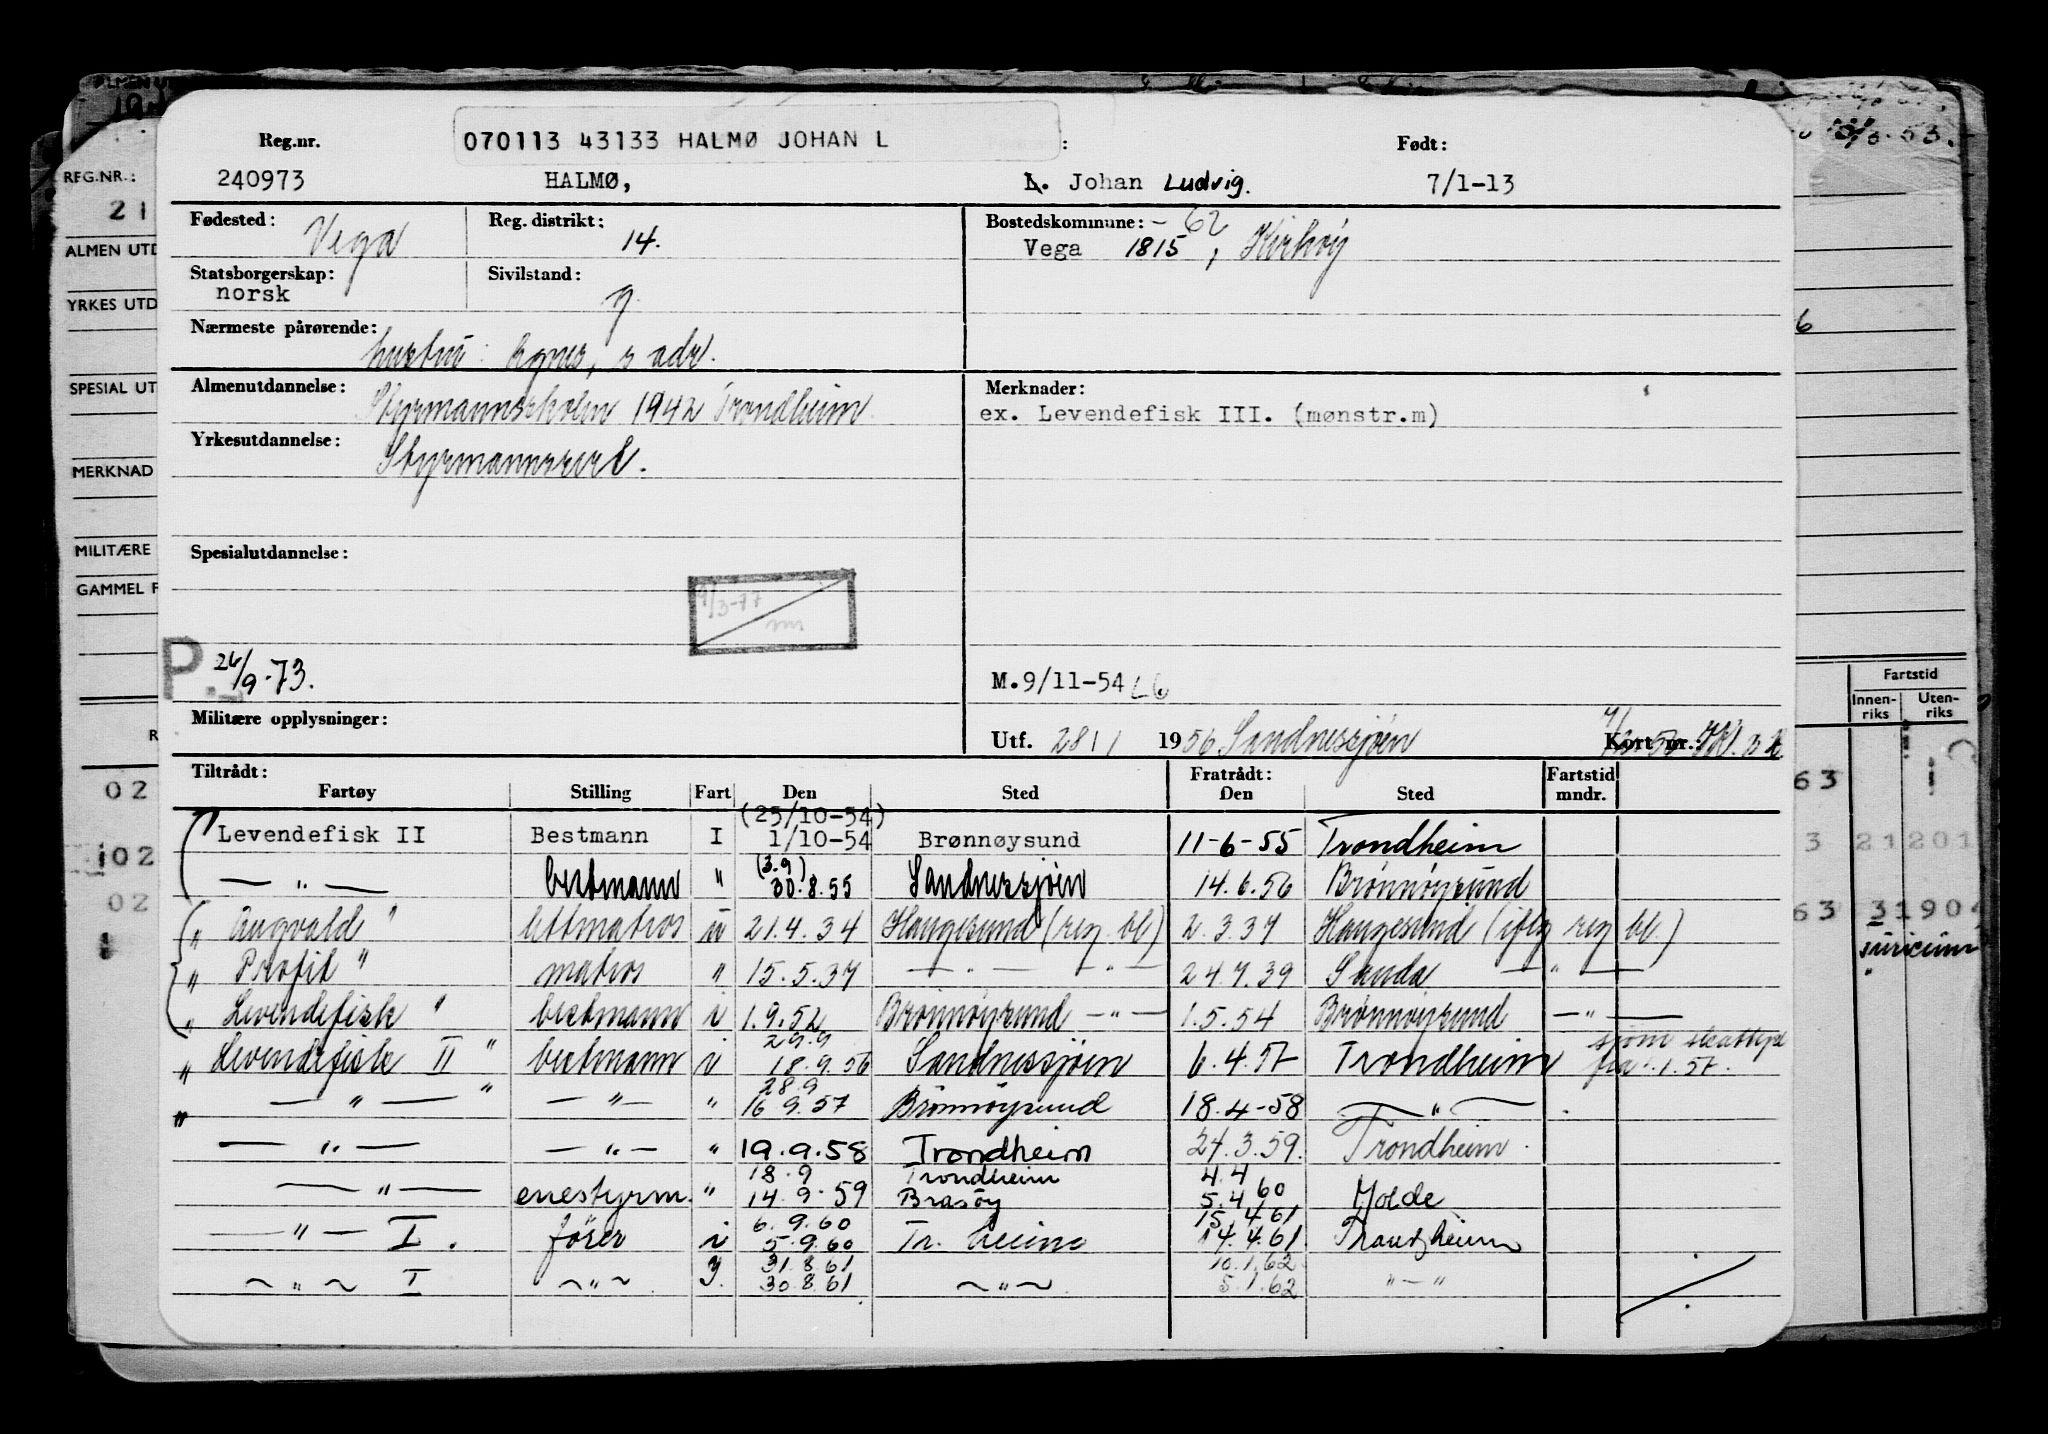 Reg.nr.
070113 43133 HALMØ JOHAN L
Født:
240973 HALMØ, Johan Ludvig. 7/1-13
Fødested: Vega
Reg. distrikt: 14.
Bostedskommune: -62
Vega 1815,
Statsborgerskap: norsk
Sivilstand: g.
Nærmeste pårørende:
hustru: Agnes, s adr.
Almenutdannelse: Styrmannsskolen 1942 Trondheim
Merknader:
ex. Levendefisk III. (mønstr.m)
Yrkesutdannelse: Styrmannssert.
Spesialutdannelse:
9/3-77
P. 26/9-73.
M.9/11-54
Militære opplysninger:
Utf. 28/1 1956 Sandnessjøen Kort nr.:
Tiltrådt: Fratrådt: Fartstid
Fartøy Stilling Fart Den Sted Den Sted mndr.
(25/10-54)
Levendefisk II Bestmann I 1/10-54 Brønnøysund 11-6-55 Trondheim
(3.9)
— " — bestmann " 30.8.55 Sandnessjøen 14.6.56 Brønnøysund
" Augvald " lettmatros u 21.4.34 Haugesund (reg. bl) 2.3.37 Haugesund (iflg reg bl.)
" Profit " matros " 15.5.37 — " — — " — 24.7.39 Sanda — " —
" Levendefisk " bestmann i 1.9.52 Brønnøysund — " — 1.5.54 Brønnøysund — " —
29.9
" Levendefisk II " bestmann i 18.9.56 Sandnessjøen 6.4.57 Trondheim
28.9
" — " — " — " — " 16.9.57 Brønnøysund 18.4-58 — " —
— " — — " — " 19.9.58 Trondheim 24.3.59. Trondheim
18.9 Trondheim 4.4
— " — enestyrm. " 14.9.59 Brasøy 5.4 60 Molde
6.9.60 15.4.61
— " — I. fører i 5.9.60 Tr. heim 14.4.61 Trondheim
31.8.61 10.1.62
~ " ~ I ~ " ~ I. 30.8.61 ~ " ~ 5.1.62 " — "
REG.NR.:
21
ALMEN UTD
YRKES UTD
SPESIAL UT
MERKNAD
MILITÆRE
GAMMEL F
02
02
02
53.
6
Fartstid
Innen-riks Uten-riks
63
3 21201
63 3190